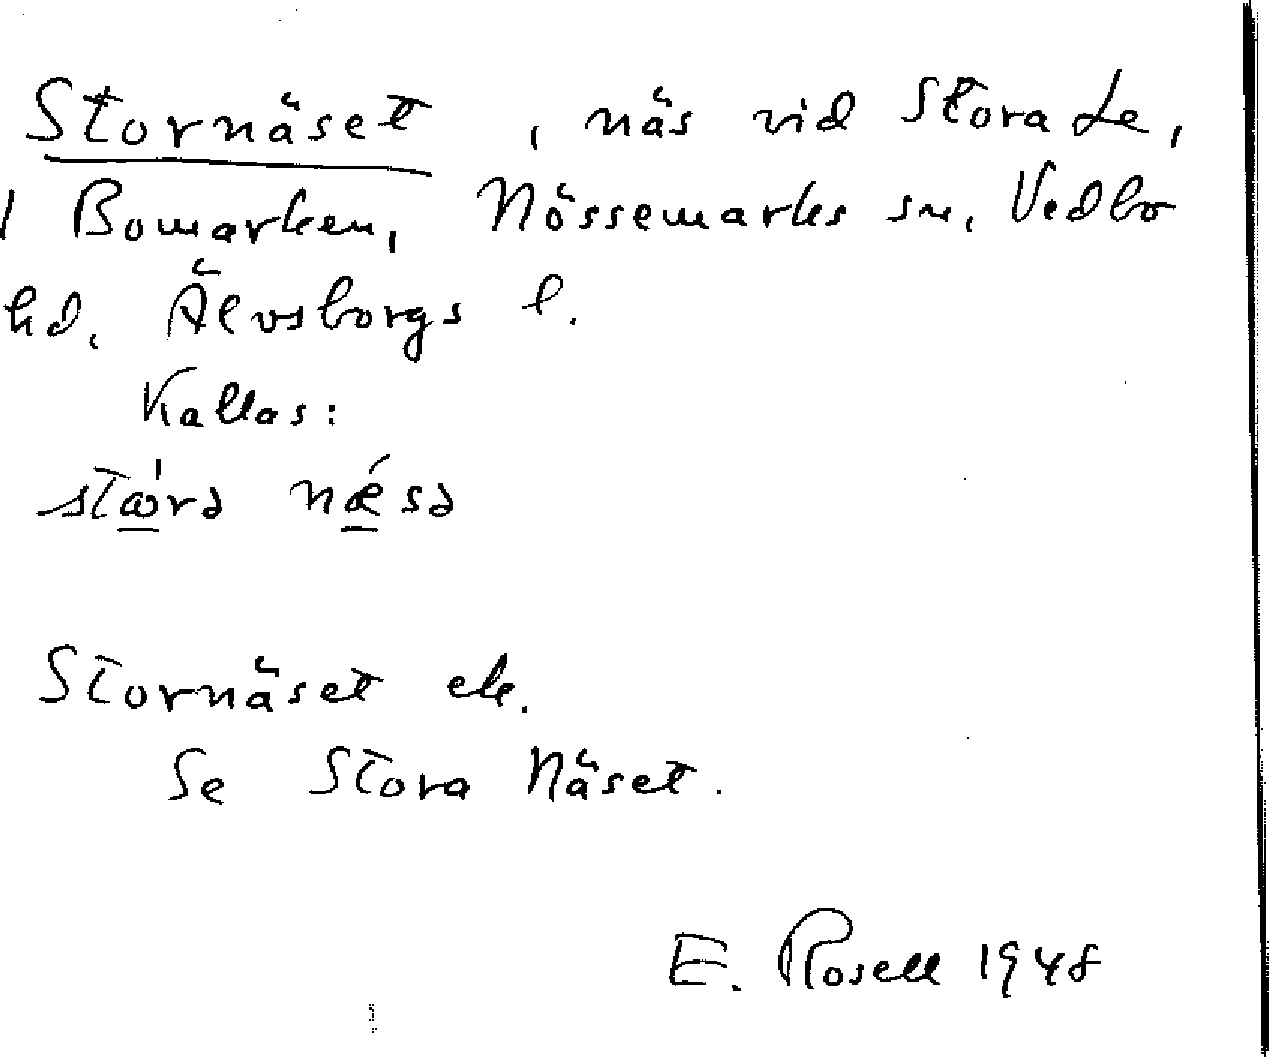 Stornäset, näs vid Stora Le,
1 Bomarken, Nössemarks sn, Vedbo
hd. Älvsborgs l.
Kallas:
stωrə næsə
Stornäset ek.
Se Stora Näset.
E. Rosell 1948